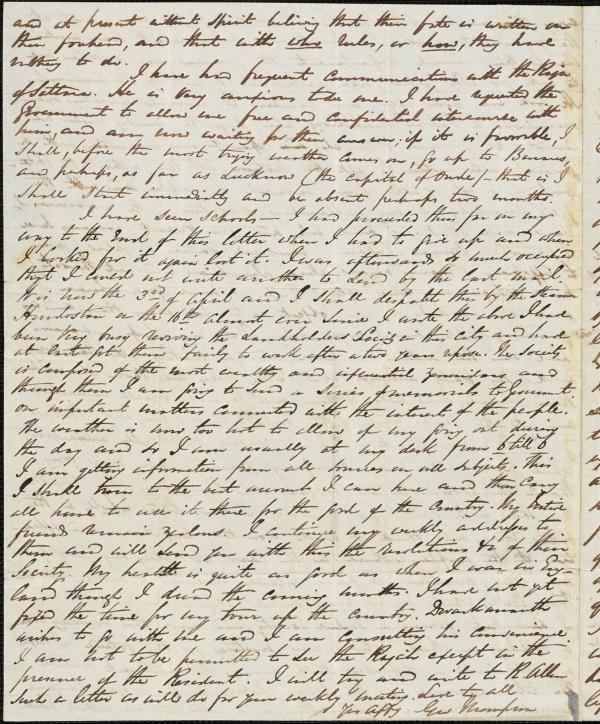 and at present without spirit believing that their fate is written on
their forehead, and that with who rules, or how, they have
nothing to do.
I have had frequent communications with the Raja
of Sattara. He is very anxious to see me. I have requested the
Government to allow me free and confidential intercourse with
him, and am now waiting for their answer; if it is favorable, I
shall, before the most trying weather comes on, go up to Benares,
and perhaps, as far as Lucknow (the capitol of Oude) — that is I
shall start immediately and be absent perhaps two months.
I have seen schools — I had proceeded thus far on my
way to the end of this letter when I had to give up and when
I looked for it again lost it. I was afterwards so much occupied
that I could not write another to send by the last mail.
It is now the 3rd of April and I shall despatch this by the steamer
Hindostan on the 10th. Almost ever since I wrote the above I have
been very busy reviving the Landholders Society in this City and have
at last got them fairly to work after a two years repose. The Society
is composed of the most wealthy and influential Zemindars, and
through them I am going to send a series of memorials to Governmt.
on important matters connected with the interest of the people.
The weather is now too hot to allow of my going out during
the day and so I am usually at my desk from 6 till 6
I am getting information from all sources on all subjects. This
I shall turn to the best account I can here and then carry
all home to use it there for the good of the Country. My native
friends remain zealous. I continue my weekly addresses to
them and will send you with this the resolutions &c of their
Society. My health is quite as good as when I was in Eng
land though I dread the coming months. I have not yet
fixed the time for my tour up the country. Dwarkanauth
wishes to go with me and I am consulting his convenience.
I am not to be permitted to see the Rajah except in the
presence of the Resident. I will try and write to R. Allen
such a letter as will do for your weekly meeting. Love to all
Yrs affy Geo Thompson